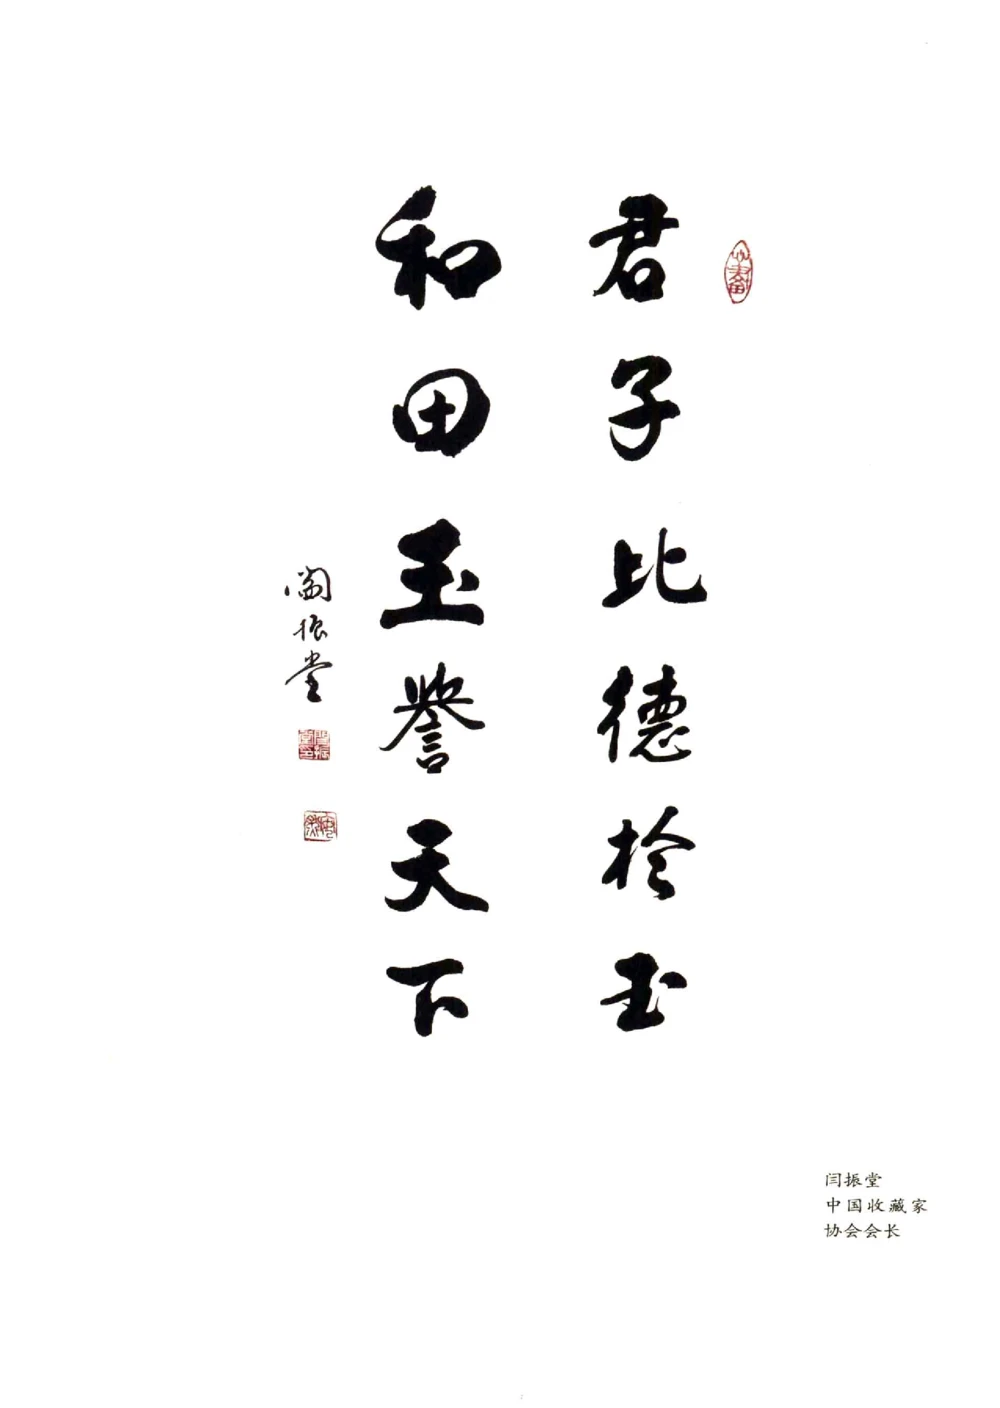 君子比德於玉
和田玉誉天下
閻振堂
闫振堂
中国收藏家
协会会长